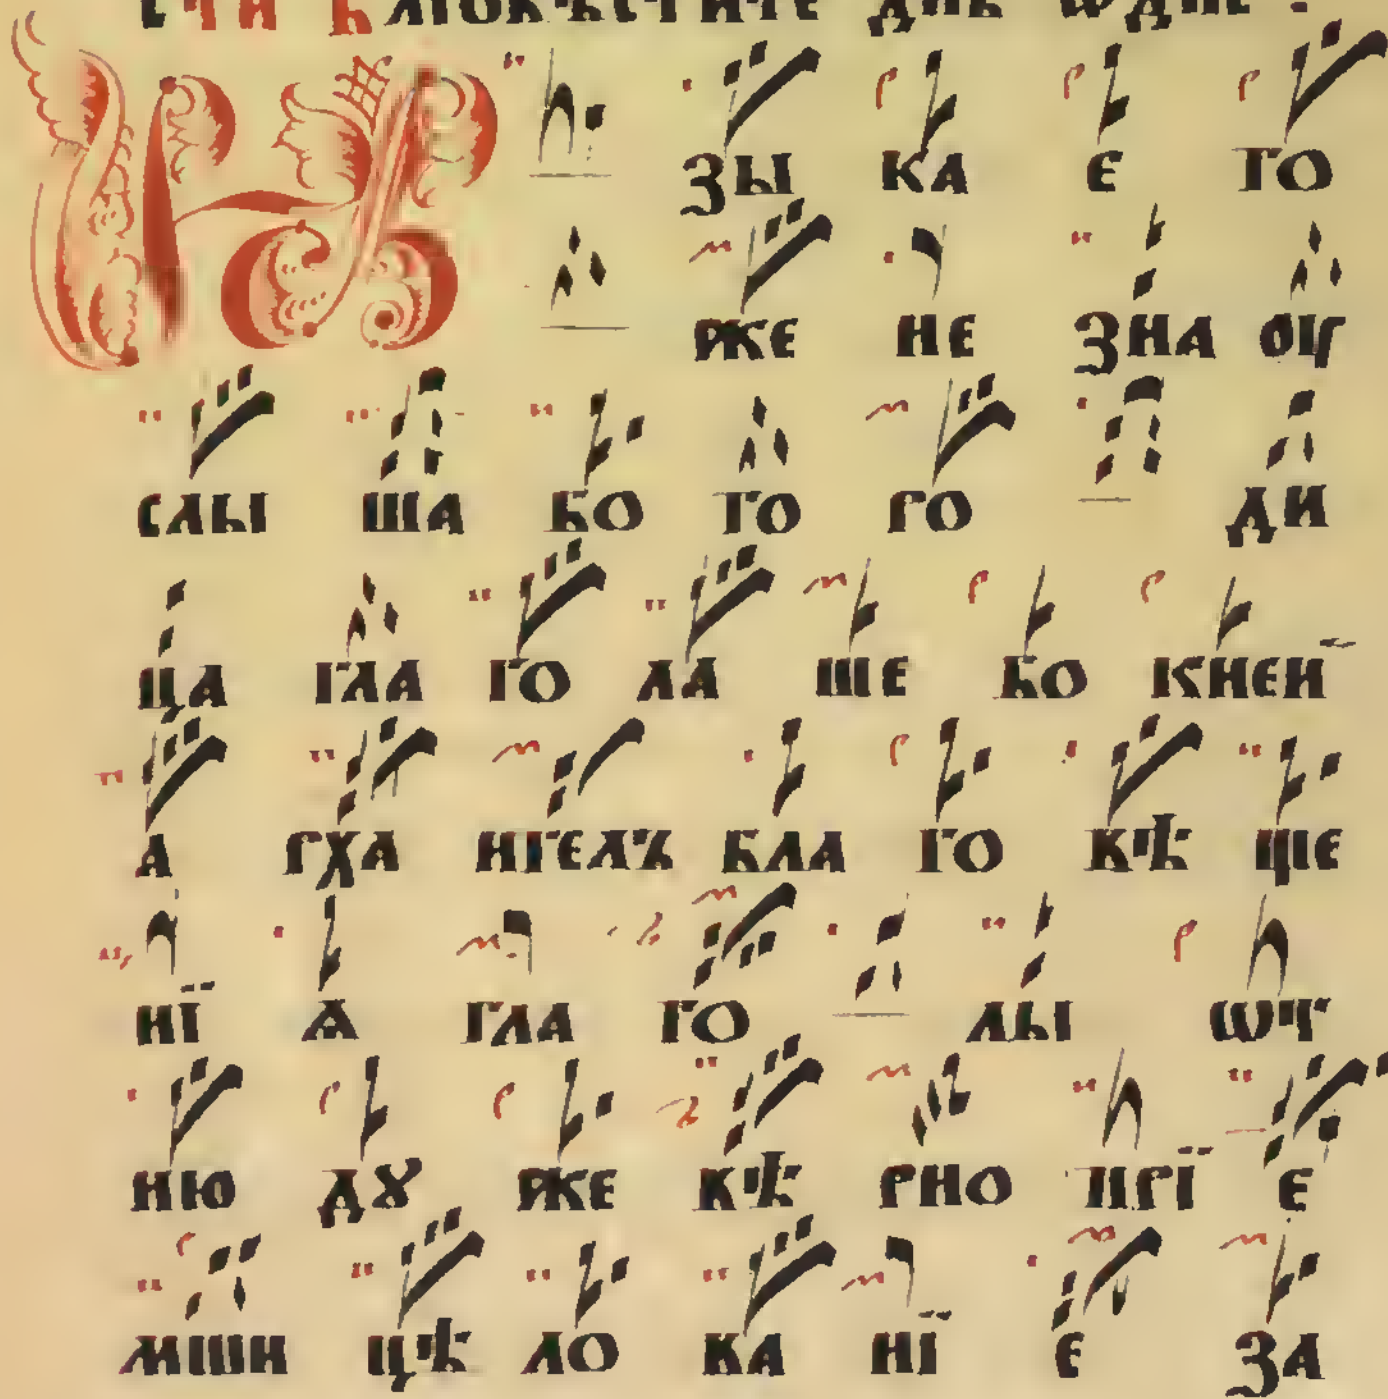 Ꙗ ЗЫ КА Е ГО
ЖЕ НЕ ЗНА ОУ
СЛЫ ША БО ГО РО ДИ
ЦА ГЛА ГО ЛА ШЕ БО КНЕИ
А РХА НГЕЛЪ БЛА ГО ВѢ ЩЕ
НЇ Ѧ ГЛА ГО ЛЫ ѾТ
НЮ ДꙊ ЖЕ ВѢ РНО ПРЇ Е
МШИ ЦѢ ЛО ВА НЇ Е ЗА